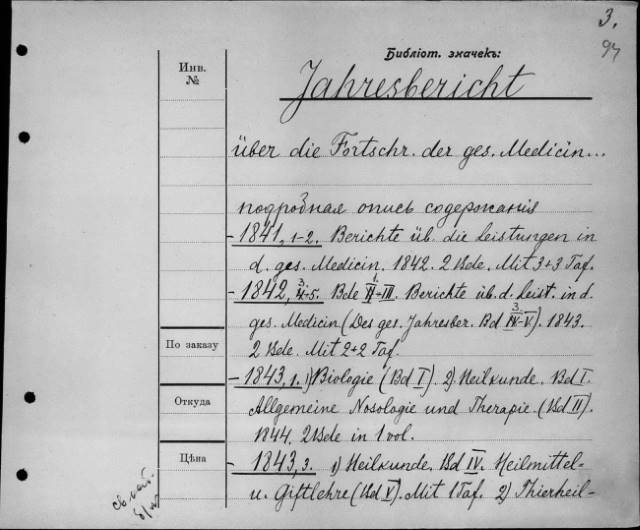 3.
97
Библіот. значекъ:
Инв.
№
Jahresbericht
über die Fortschr. der ges. Medicin...
подробная опись содержанія
- 1841, 1-2. Berichte üb. die Leistungen in
d. ges. Medicin. 1842. 2 Bde. Mit 3+3 Taf.
- 1842, 4-5. Bde II-III. Berichte üb. d. Leist. in d.
3
ges. Medicin (Des ges. Jahresber. Bd IV-V). 1843.
2 Bde. Mit 2+2 Taf.
По заказу
- 1843, 1. 1) Biologie (Bd I). 2) Heilkunde. Bd I.
Откуда
Allgemeine Nosologie und Therapie (Bd II).
1844. 2 Bde in 1 vol.
Цѣна
- 1843, 3. 1) Heilkunde. Bd IV. Heilmittel-
u. Giftlehre (Bd V). Mit 1 Taf. 2) Thierheil-